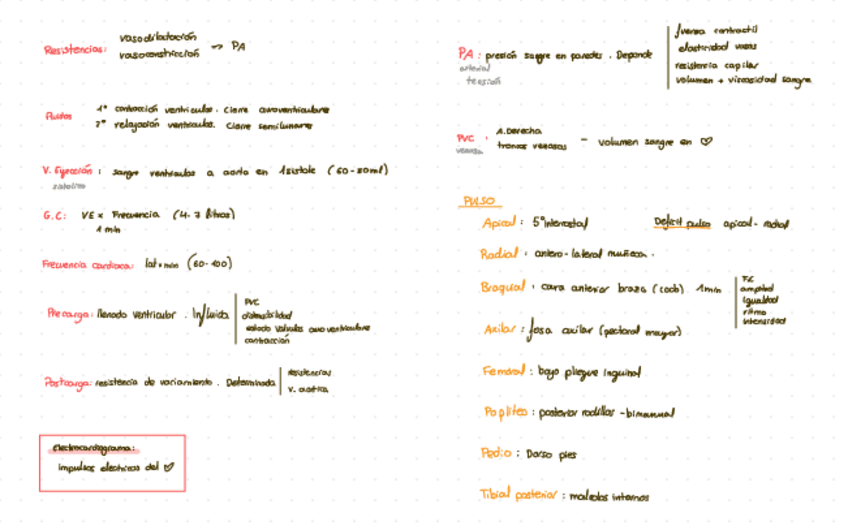 Resistencias: vasodilatación
vasoconstricción → PA
Ruidos 1º contracción ventriculos. Cierre auroventriculare
2º relajación ventriculos. Cierre semilunare
V. Eyección: sangre ventriculos a aorta en 1 sistole (60-80ml)
sistolico
G.C: VE x Frecuencia (4-7 litros)
1 min
Frecuencia cardiaca: lat x min (60-100)
Precarga: llenado ventricular. Influida
PVC
distensibilidad
estado valvulas auroventriculare
contracción
Postcarga: resistencia de vaciamiento. Determinada
resistencias
V. aortica
Electrocardiograma:
impulsos electricos del ♡
PA: presión sangre en paredes. Depende
arterial
tensión
fuerza contractil
elasticidad vasos
resistencia capilar
volumen + viscosidad sangre
PVC: A. Derecha
venosa troncos venosos - volumen sangre en ♡
PULSO
Apical: 5º intercostal Deficit pulso apical-radial
Radial: antero-lateral muñeca.
Braquial: cara anterior brazo (codo) 1min
FC
amplitud
igualdad
ritmo
intensidad
Axilar: fosa axilar (pectoral mayor)
Femoral: bajo pliegue inguinal
Popliteo: posterior rodillas - bimanual
Pedio: Dorso pies
Tibial posterior: maleolos internos